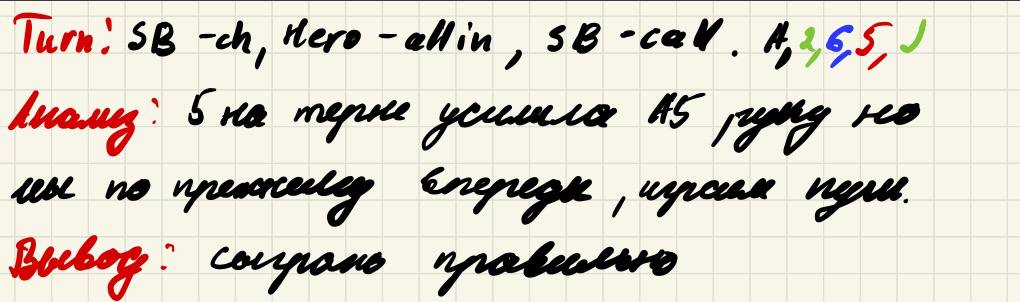 Turn: SB - ch, Hero - all in, SB - call. A, 2, 6, 5, J
Анализ: 5 на терне усилила A5, но
мы по прежнему впереди, играем пуш.
Вывод: сыграно правильно